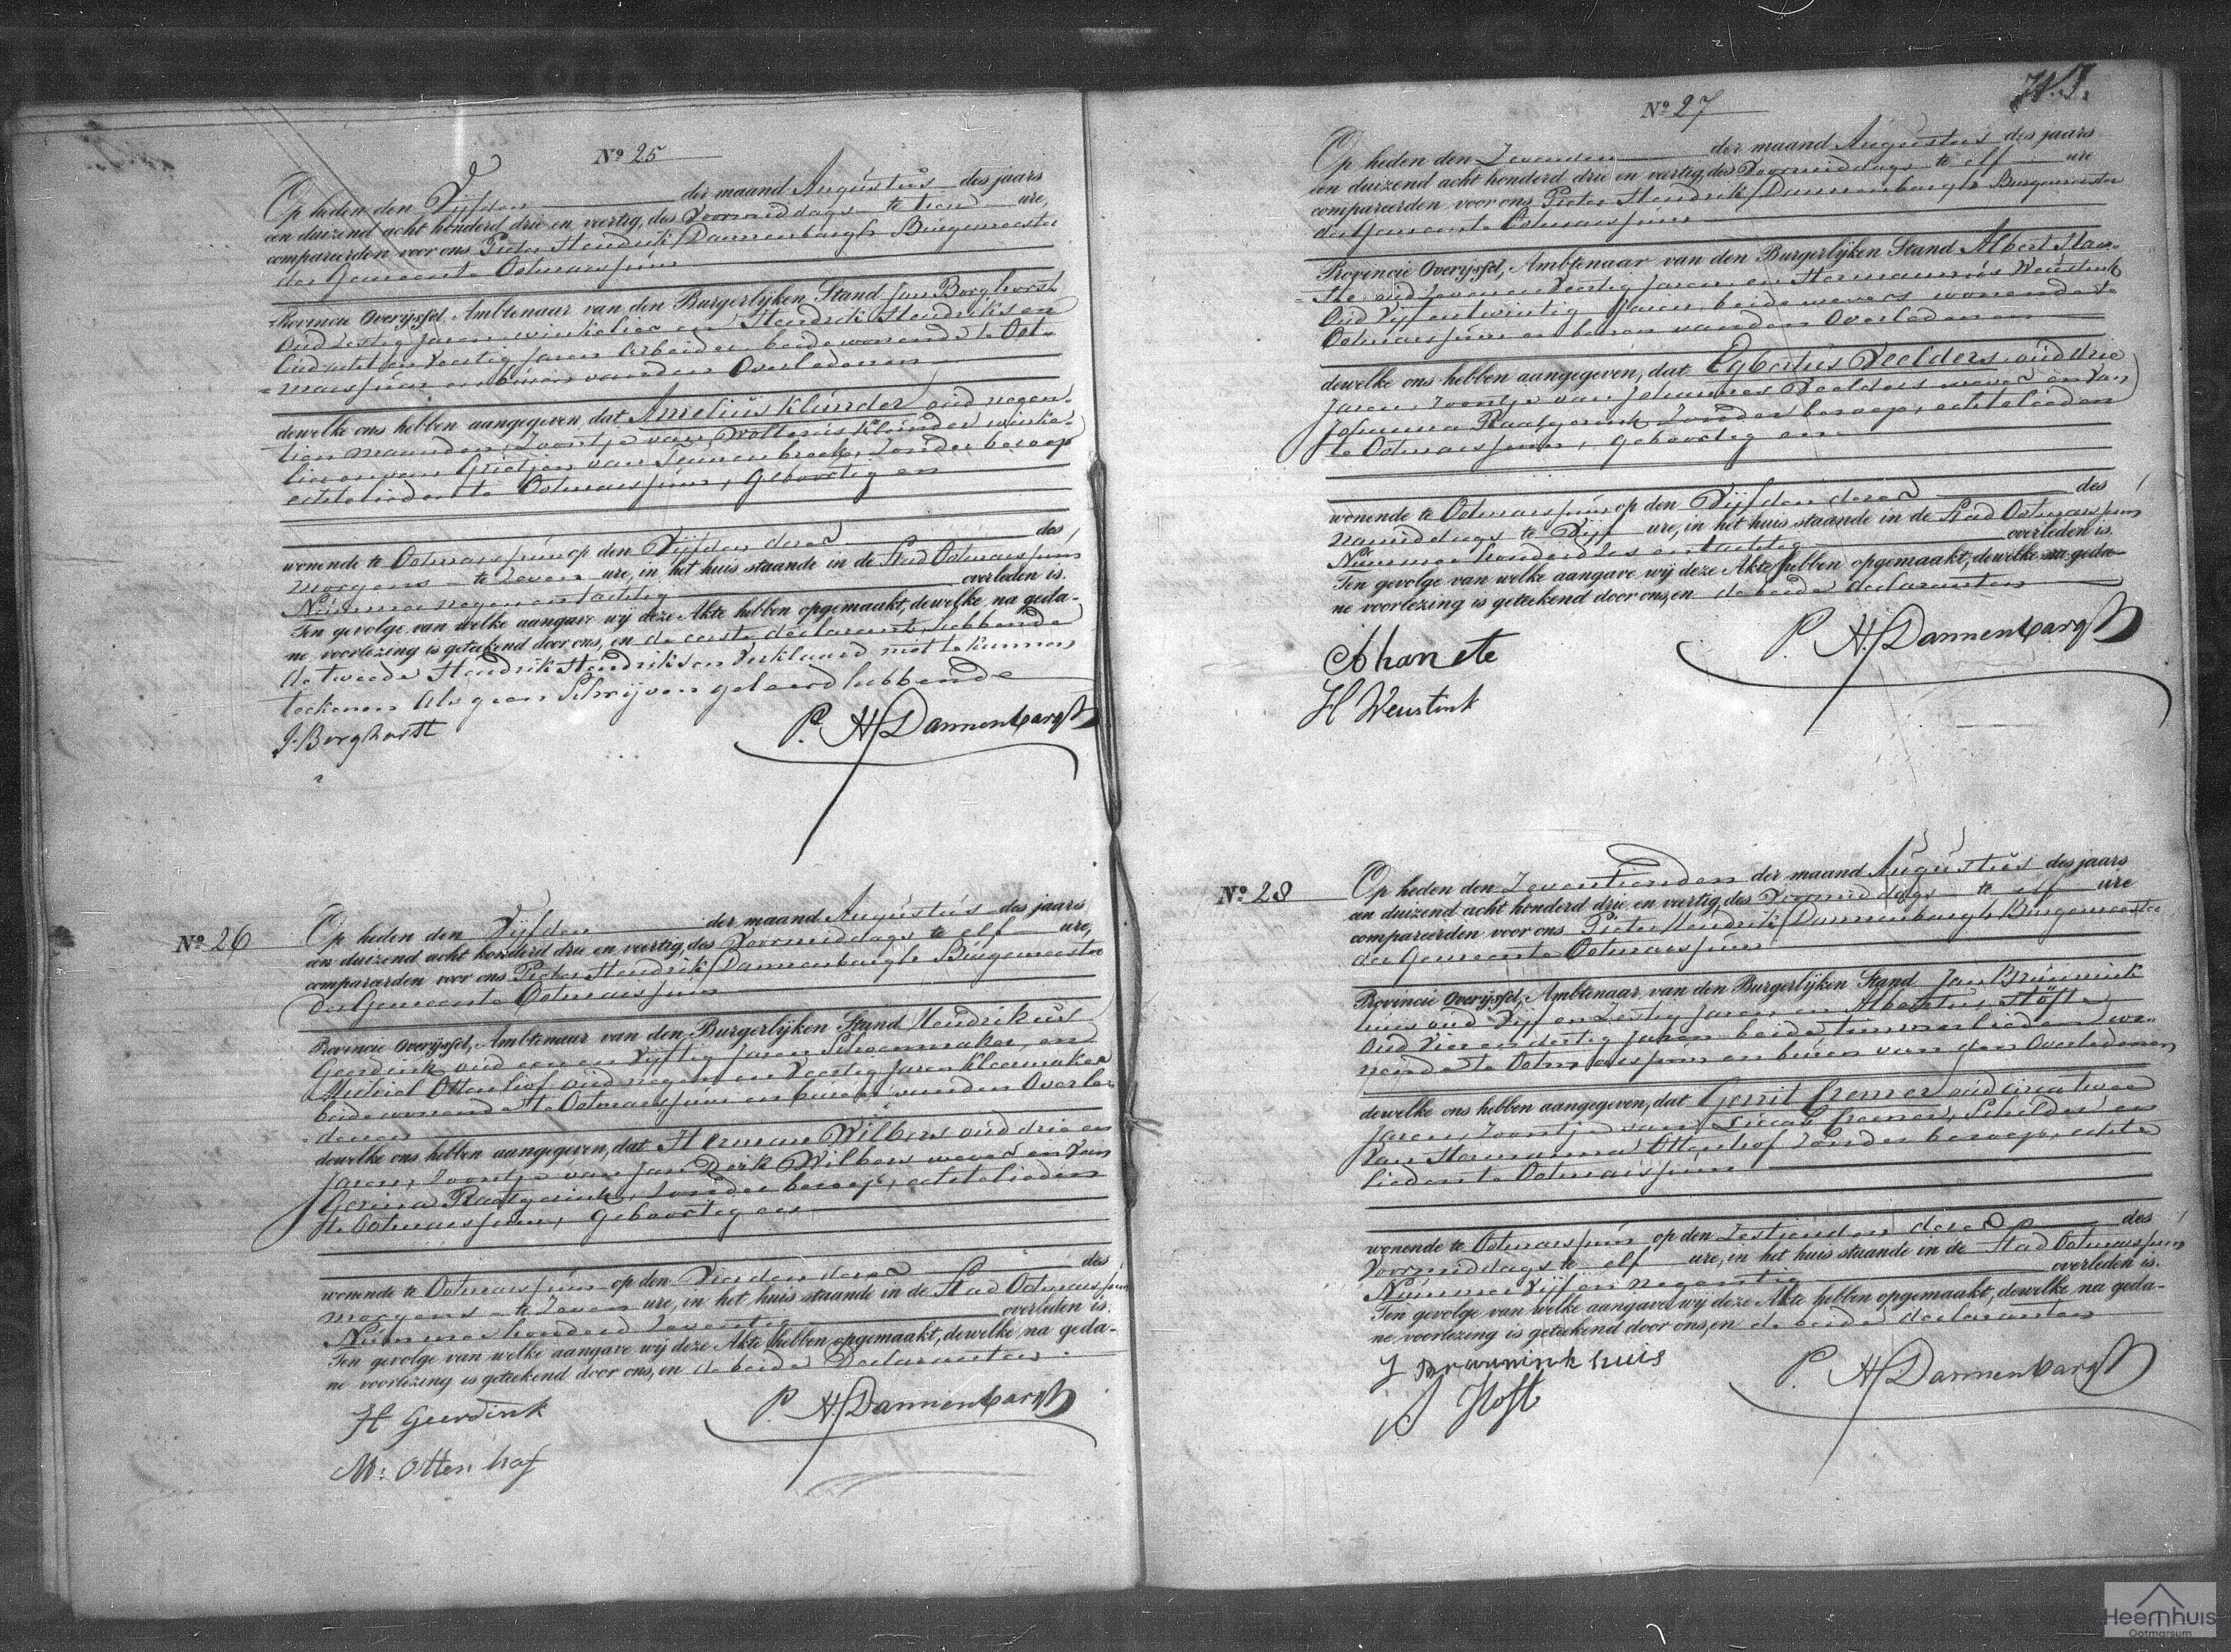 Nº 25
Op heden den Vijfden der maand Augustus des jaars
een duizend acht honderd drie en veertig, des Voormiddags te tien ure,
compareerden voor ons Pieter Hendrik Dannenbargh Burgemeester
der Gemeente Ootmarssum
Provincie Overijssel, Ambtenaar van den Burgerlijken Stand Jan Borghorst
Oud Zestig Jaren winkelier en Hendrik Hendriksen
Oud acht en Veertig Jaren Arbeider beide wonende te Oot=
=marssum en buren van den Overledenen
dewelke ons hebben aangegeven, dat Amelius Klunder oud negen=
tien maanden, Zoontje van Wolterus Klunder winke=
lier en van Grietjen van Tunenbroek, Zonder beroep
echtelieden te Ootmarssum, geboortig en
wonende te Ootmarssum op den Vijfden dezer des
morgens te Zeven ure, in het huis staande in de Stad Ootmarssum
Nummer negen en tachtig overleden is.
Ten gevolge van welke aangave wij deze Akte hebben opgemaakt, dewelke na geda-
ne voorlezing is geteekend door ons, en de eerste declarant, hebbende
de tweede Hendrik Hendriksen Verklaard niet te kunnen
teekenen Als geen Schrijven geleerd hebbende
J. Borghorst P. H. Dannenbargh
Nº 26
Op heden den Vijfden der maand Augustus des jaars
een duizend acht honderd drie en veertig, des Voormiddags te elf ure,
compareerden voor ons Pieter Hendrik Dannenbargh Burgemeester
der Gemeente Ootmarssum
Provincie Overijssel, Ambtenaar van den Burgerlijken Stand Hendrikus
Geerdink oud een en Vijftig Jaren Schoenmaker, en
Michiel Ottenhof oud negen en Veertig Jaren Kleermaker
beide wonende te Ootmarssum en buren van den Overle=
=denen
dewelke ons hebben aangegeven, dat Herman Wilbers oud drie en
Jaren, Zoontje van Jan Derk Wilbers wever en Van
Gerina Raatgerink, Zonder beroep, echtelieden
te Ootmarssum, geboortig en
wonende te Ootmarssum op den Vierden dezer des
morgens te Zeven ure, in het huis staande in de Stad Ootmarssum
Nummer honderd Zeventig overleden is.
Ten gevolge van welke aangave wij deze Akte hebben opgemaakt, dewelke na geda-
ne voorlezing is geteekend door ons, en de beide Declaranten
H Geerdink P. H. Dannenbargh
M: Ottenhof
Nº 27
Op heden den Zevenden der maand Augustus des jaars
een duizend acht honderd drie en veertig, des Voormiddags te elf ure
compareerden voor ons Pieter Hendrik Dannenbargh Burgemeester
der Gemeente Ootmarssum
Provincie Overijssel, Ambtenaar van den Burgerlijken Stand Albert Han=
=ste oud Zeven en Veertig Jaren en Hermannus Weustink
Oud Vijf en twintig Jaren, beide wevers wonende te
Ootmarssum en buren van den Overledenen
dewelke ons hebben aangegeven, dat Egbertus Veelders oud drie
Jaren, Zoontje van Johannes Veelders wever en Van
Johanna Raatgerink Zonder beroep, echtelieden
te Ootmarssum, geboortig en
wonende te Ootmarssum op den Vijfden dezer des
namiddags te Vijf ure, in het huis staande in de Stad Ootmarssum
Nummer honderd Zes en tachtig overleden is.
Ten gevolge van welke aangave wij deze Akte hebben opgemaakt, dewelke na geda-
ne voorlezing is geteekend door ons, en de beide declaranten
A hanste P. H. Dannenbargh
H Weustink
Nº 28
Op heden den Zeventienden der maand Augustus des jaars
een duizend acht honderd drie en veertig, des Voormiddags te elf ure
compareerden voor ons Pieter Hendrik Dannenbargh Burgemeester
der Gemeente Ootmarssum
Provincie Overijssel, Ambtenaar van den Burgerlijken Stand Jan Bruunink
huis oud Vijf en Zestig Jaren en Albertus Höfte
Oud Vier en dertig Jaren beide timmerlieden wo=
nende te Ootmarssum en buren van den Overledenen
dewelke ons hebben aangegeven, dat Gerrit Cremer oud circa twee
Jaren, Zoontje van Lucas Cremer, Schilder en
Van Hermanna Ottenhof Zonder beroep, echte
lieden te Ootmarssum
wonende te Ootmarssum op den Zestienden dezer des
Voormiddags te elf ure, in het huis staande in de Stad Ootmarssum
Nummer Vijf en negentig overleden is.
Ten gevolge van welke aangave wij deze Akte hebben opgemaakt, dewelke na geda-
ne voorlezing is geteekend door ons, en de beide declaranten
J Bruunink huis P. H. Dannenbargh
Höft
Heemhuis
Ootmarsum